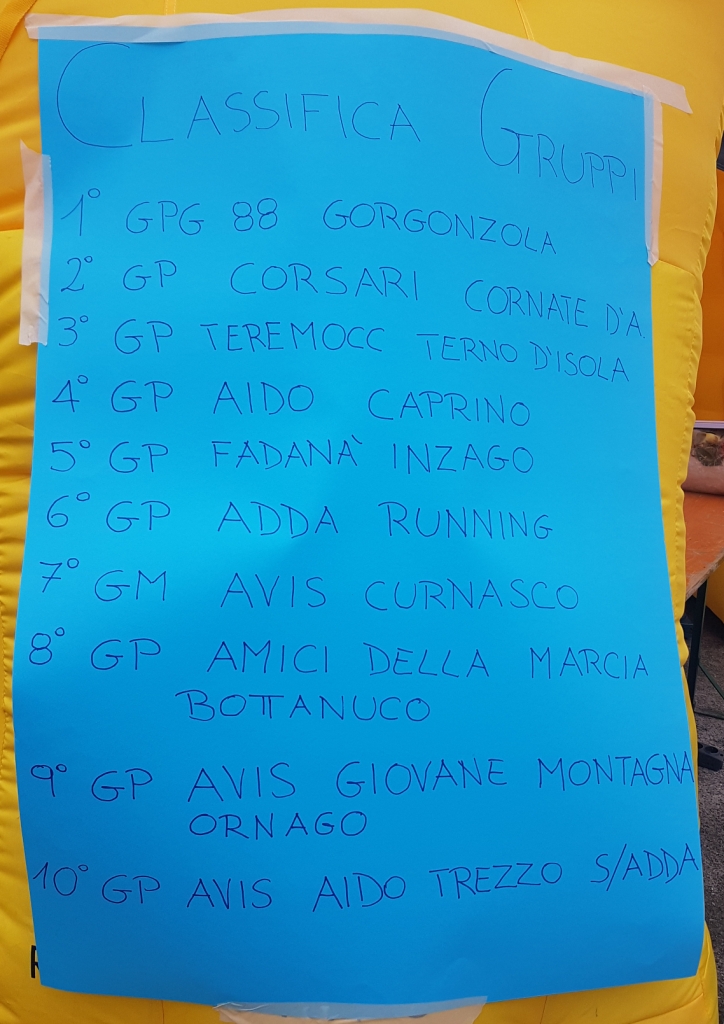 CLASSIFICA GRUPPI
1° GPG 88 GORGONZOLA
2° GP CORSARI CORNATE D'A.
3° GP TEREMOCC TERNO D'ISOLA
4° GP AIDO CAPRINO
5° GP FADANA' INZAGO
6° GP ADDA RUNNING
7° GM AVIS CURNASCO
8° GP AMICI DELLA MARCIA
BOTTANUCO
9° GP AVIS GIOVANE MONTAGNA
ORNAGO
10° GP AVIS AIDO TREZZO S/ADDA